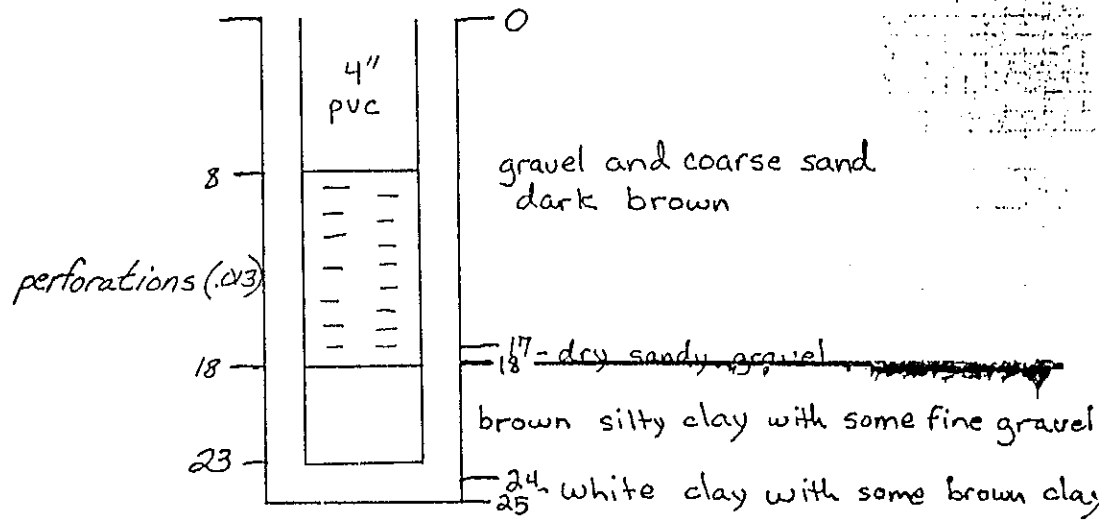 0
4"
pvc
8
gravel and coarse sand
dark brown
perforations (.013)
17 - dry sandy gravel
18
18
brown silty clay with some fine gravel
23
24 - white clay with some brown clay
25